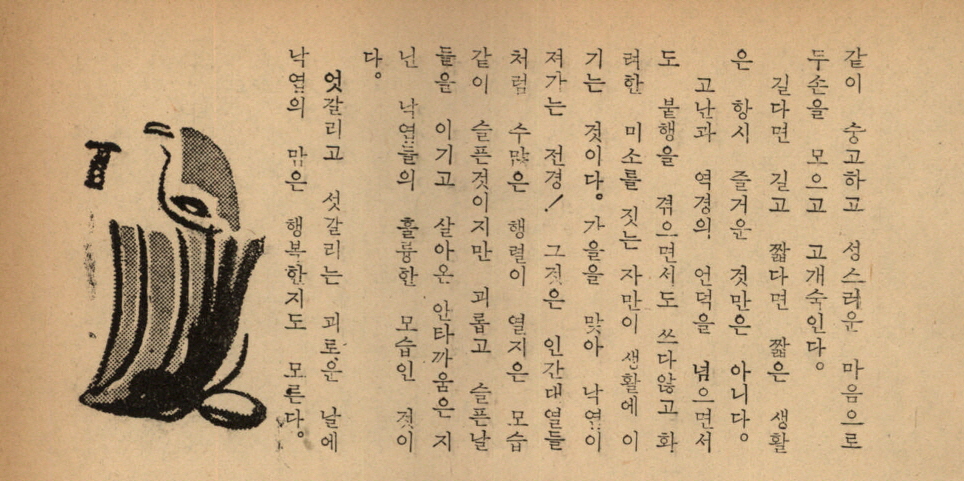 같이 숭고하고 성스러운 마음으로
두손을 모으고 고개숙인다。
길다면 길고 짧다면 짧은 생활
은 항시 즐거운 것만은 아니다。
고난과 역경의 언덕을 넘으면서
도 불행을 겪으면서도 쓰다않고 화
려한 미소를 짓는 자만이 생활에 이
기는 것이다。가을을 맞아 낙엽이
져가는 전경! 그것은 인간대열들
처럼 수많은 행렬이 열지은 모습
같이 슬픈것이지만 괴롭고 슬픈날
들을 이기고 살아온 안타까움은 지
닌 낙엽들의 훌륭한 모습인 것이
다。
엇갈리고 섯갈리는 괴로운 날에
낙엽의 맘은 행복한지도 모른다。